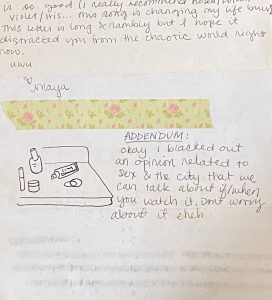 is so good (I really recommend
violet/iris... this song is changing my life
This letter is long & rambly but I hope it
distracted you from the chaotic world right
now.
uwu
maya
ADDENDUM:
okay I blacked out
an opinion related to
sex & the city that we
can talk about if/when
you watch it. Dont worry
about it eheh